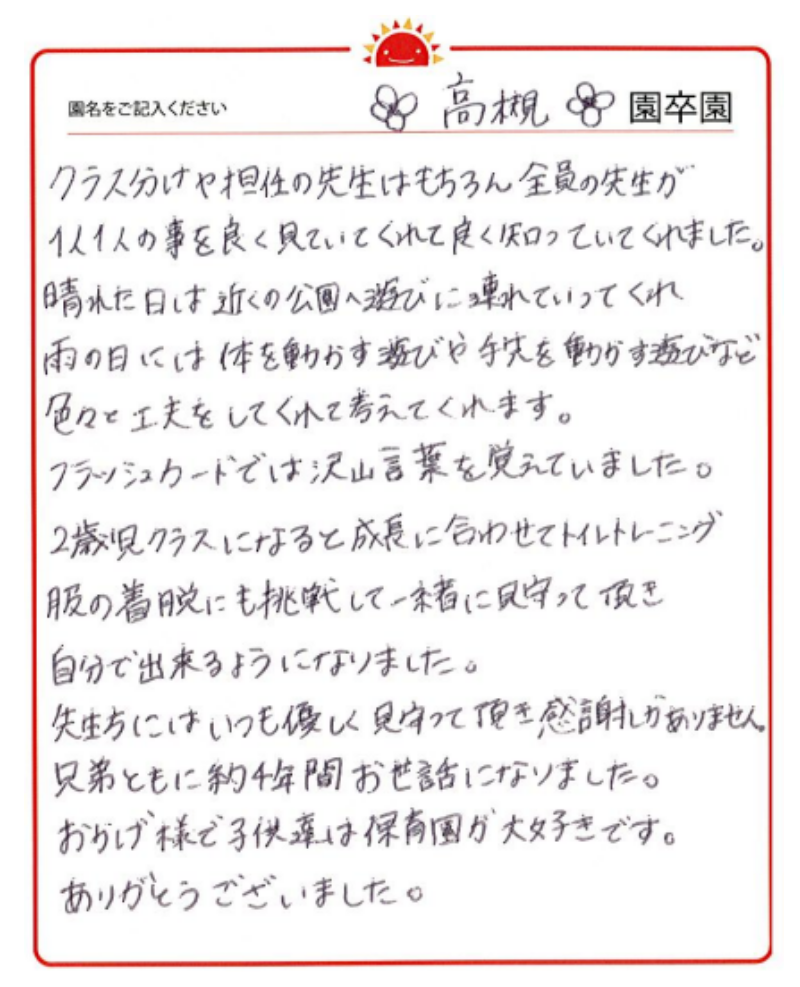 園名をご記入ください 高槻 園卒園
クラス分けや担任の先生はもちろん全員の先生が
1人1人の事を良く見ていてくれて良く知っていてくれました。
晴れた日は近くの公園へ遊びに連れていってくれ
雨の日には体を動かす遊びや手先を動かす遊びなど
色々と工夫をしてくれて考えてくれます。
フラッシュカードでは沢山言葉を覚えていました。
2歳児クラスになると成長に合わせてトイレトレーニング
服の着脱にも挑戦して一緒に見守って頂き
自分で出来るようになりました。
先生方にはいつも優しく見守って頂き感謝しかありません。
兄弟ともに約4年間お世話になりました。
おかげ様で子供達は保育園が大好きです。
ありがとうございました。